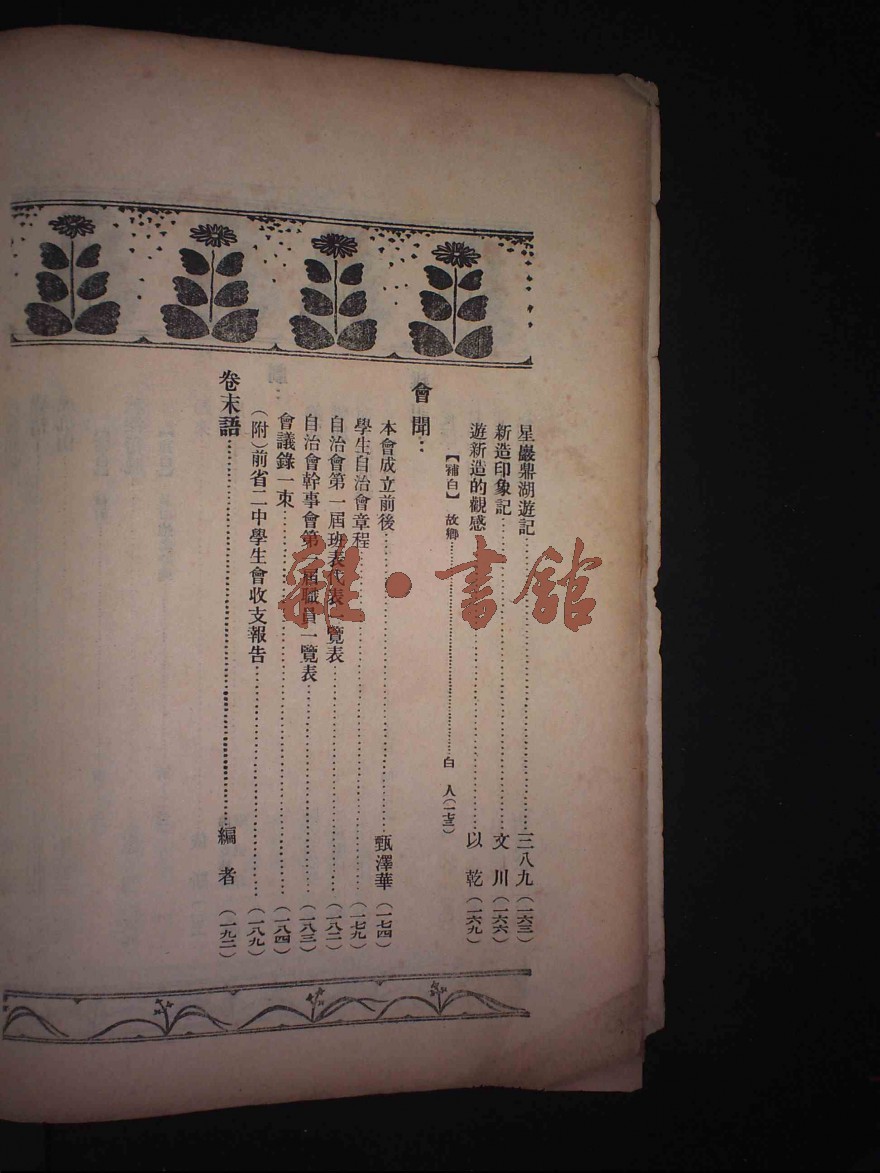 星巖鼎湖遊記…………三八九（一六三）
新造印象記…………文川（一六六）
遊新造的觀感…………以乾（一六九）
【補白】故鄉…………白人（一七三）
會聞：
本會成立前後…………甄澤華（一七四）
學生自治會章程…………（一七九）
自治會第一屆班表代表一覽表…………（一八二）
自治會幹事會第一屆職員一覽表…………（一八三）
會議錄一束…………（一八四）
（附）前省二中學生會收支報告…………（一八九）
卷末語…………編者（一九二）
雜·書館